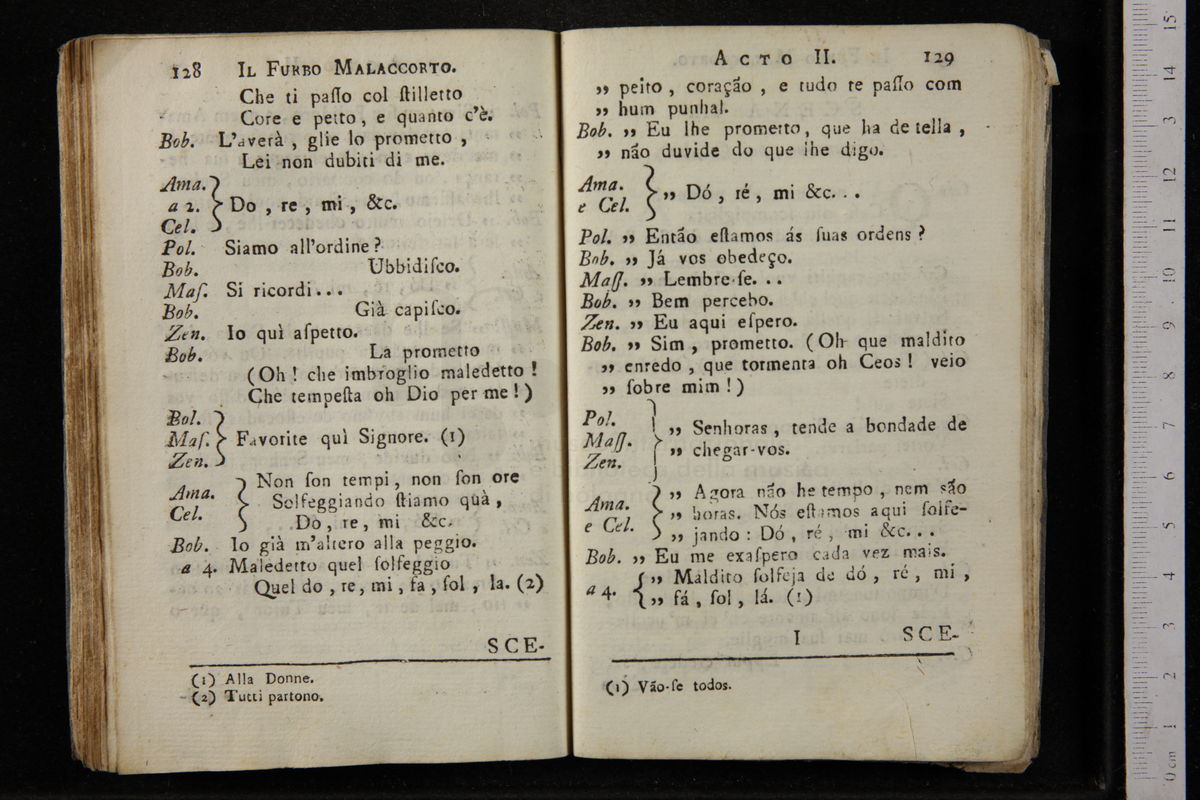 128 IL FURBO MALACCORTO.
Che ti paſſo col ſtilletto
Core e petto, e quanto c'è.
Bob. L'averà, glie lo prometto,
Lei non dubiti di me.
Ama.
a 2. } Do, re, mi, &c.
Cel.
Pol. Siamo all'ordine?
Bob. Ubbidiſco.
Maſ. Si ricordi...
Bob. Già capiſco.
Zen. Io quì aſpetto.
Bob. La prometto
(Oh! che imbroglio maledetto!
Che tempeſta oh Dio per me!)
Bol.
Maſ. } Favorite quì Signore. (1)
Zen.
Ama. } Non ſon tempi, non ſon ore
Cel. { Solfeggiando ſtiamo quà,
Do, re, mi &c.
Bob. Io già m'altero alla peggio.
a 4. Maledetto quel ſolfeggio
Quel do, re, mi, fa, ſol, la. (2)
SCE-
(1) Alla Donne.
(2) Tutti partono.
ACTO II. 129
„ peito, coração, e tudo te paſſo com
„ hum punhal.
Bob. „ Eu lhe prometto, que ha de tella,
„ não duvide do que lhe digo.
Ama.
e Cel. } „ Dó, ré, mi &c...
Pol. „ Então eſtamos ás ſuas ordens?
Bob. „ Já vos obedeço.
Maſſ. „ Lembre-ſe...
Bob. „ Bem percebo.
Zen. „ Eu aqui eſpero.
Bob. „ Sim, prometto. (Oh que maldito
„ enredo, que tormenta oh Ceos! veio
„ ſobre mim!)
Pol.
Maſſ. } „ Senhoras, tende a bondade de
Zen. „ chegar-vos.
Ama. } „ Agora não he tempo, nem são
e Cel. „ horas. Nós eſtamos aqui ſolfe-
„ jando: Dó, ré, mi &c...
Bob. „ Eu me exaſpero cada vez mais.
a 4. { „ Maldito ſolfeja de dó, ré, mi,
„ fá, ſol, lá. (1)
I SCE-
(1) Vão-ſe todos.
15
14
13
12
11
10
9
8
7
6
5
4
3
2
1
0 cm